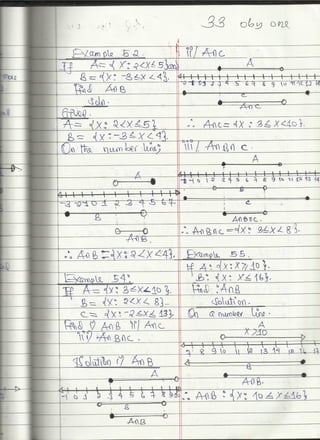 33 oby one
Example 52.
If A = {x: 2<x≤5} and
B = {x: -3≤x<4}.
Find A∩B
Soln.
Given.
A = {x: 2<x≤5}
B = {x: -3≤x<4}.
On the number line;
A
-3 -2 -1 0 1 2 3 4 5 6 7
B
A∩B.
∴ A∩B = {x: 2<x<4}.
Example 54:
If A = {x: 3≤x<10}.
B = {x: 2<x<8}.
C = {x: -2≤x≤13}
Find i) A∩B ii) A∩C
iii) A∩B∩C.
Solution i) A∩B
A
B
A∩B
ii/ A∩C
A
C
A∩C
∴ A∩C = {x: 3≤x<10}.
iii/ A∩B∩C.
A
B
C
A∩B∩C.
∴ A∩B∩C = {x: 3≤x<8}.
Example 55.
If A: {x: x≥10}.
B: {x: x≤16}.
Find: A∩B
Solution.
On a number line.
A
x≥10
7 8 9 10 11 12 13 14 15 16 17
B
A∩B.
∴ A∩B: {x: 10≤x≤16}